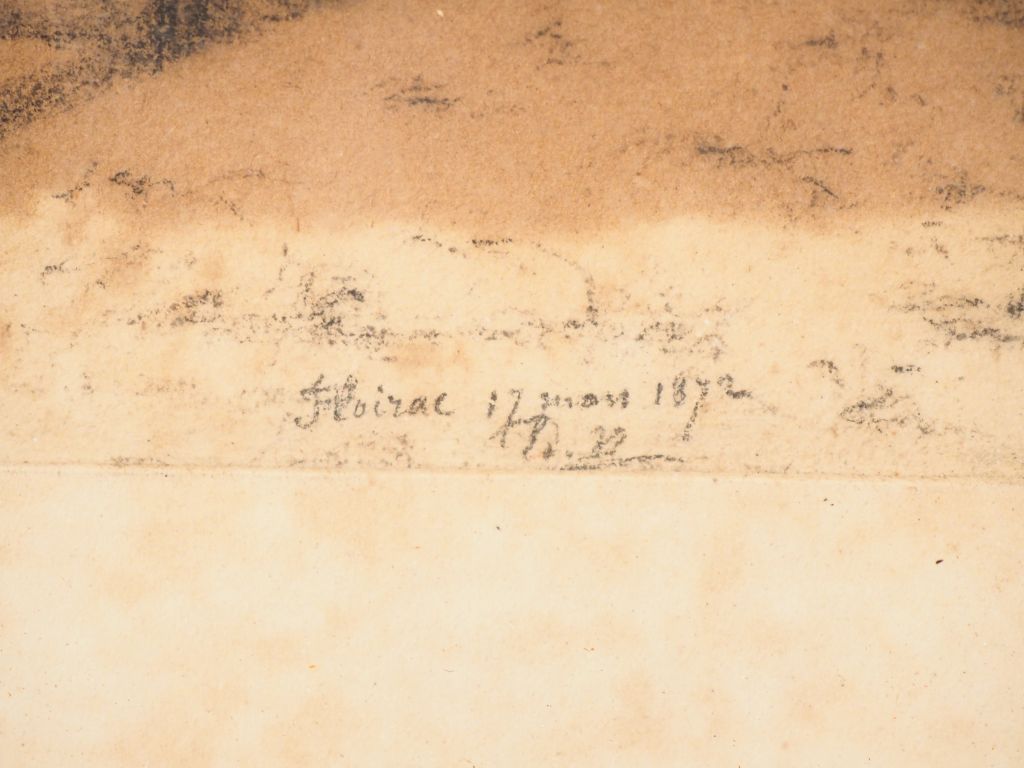 Floirac 17 mars 1872